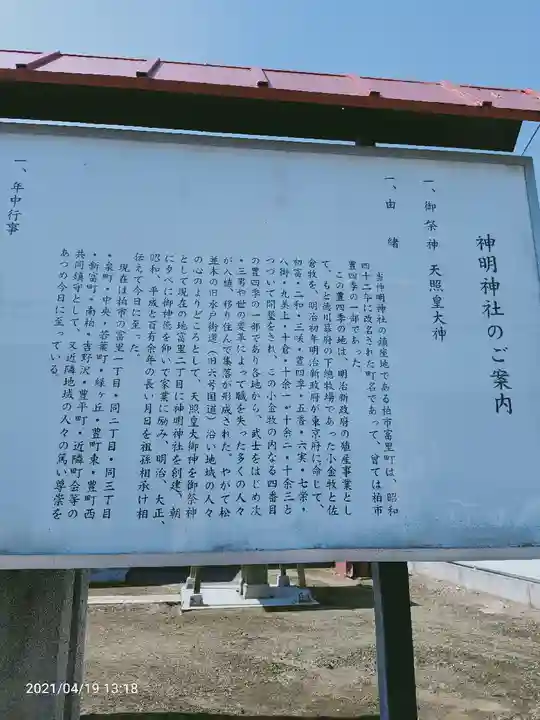 神明神社のご案内
一、御祭神 天照皇大神
一、由 緒
当神明神社の鎮座地である柏市富里町は、昭和
四十二年に改名された町名であって、曾ては柏市
豊四季の一部であった。
この豊四季の地は、明治新政府の殖産事業とし
て、もと徳川幕府の下総牧場であった小金牧と佐
倉牧を、明治初年明治新政府が東京府に命じて、
初富・二和・三咲・豊四季・五香・六実・七栄・
八街・九美上・十倉・十余一・十余二・十余三と
つづいて開墾をされ、この小金牧の内なる四番目
の豊四季の一部であり各地から、武士をはじめ次
・三男や世の変革によって職を失った多くの人々
が入植、移り住んで集落が形成された。やがて松
並木の旧水戸街道(旧六号国道)沿い地域の人々
の心のよりどころとして、天照皇大御神を御祭神
として現在の地富里二丁目に神明神社を創建、朝
に夕べに御神徳を仰いで家業に励み、明治、大正、
昭和、平成と百有余年の長い月日を祖孫相承け相
伝えて今日に至った。
現在は柏市の富里一丁目・同二丁目・同三丁目
・泉町・中央・若葉町・緑ヶ丘・豊町東・豊町西
・新富町・南柏・吉野沢・豊平町・近隣町会等の
共同鎮守として、又近隣地域の人々の篤い尊崇を
あつめ今日に至っている。
一、年中行事
2021/04/19 13:18